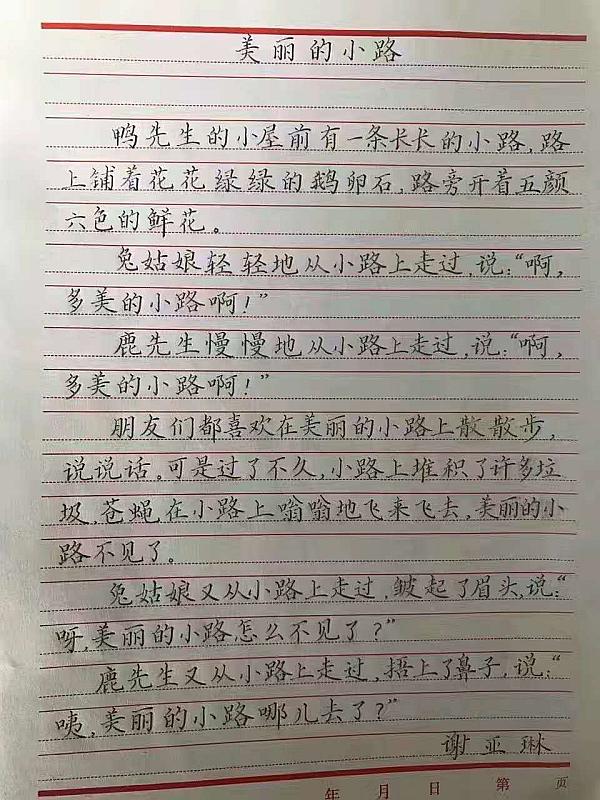 美丽的小路
鸭先生的小屋前有一条长长的小路,路
上铺着花花绿绿的鹅卵石,路旁开着五颜
六色的鲜花。
兔姑娘轻轻地从小路上走过,说:“啊,
多美的小路啊!”
鹿先生慢慢地从小路上走过,说:“啊,
多美的小路啊!”
朋友们都喜欢在美丽的小路上散散步,
说说话。可是过了不久,小路上堆积了许多垃
圾,苍蝇在小路上嗡嗡地飞来飞去,美丽的小
路不见了。
兔姑娘又从小路上走过,皱起了眉头,说:“
呀,美丽的小路怎么不见了?”
鹿先生又从小路上走过,捂上了鼻子,说:“
咦,美丽的小路哪儿去了?”
谢亚琳
年 月 日 第 页